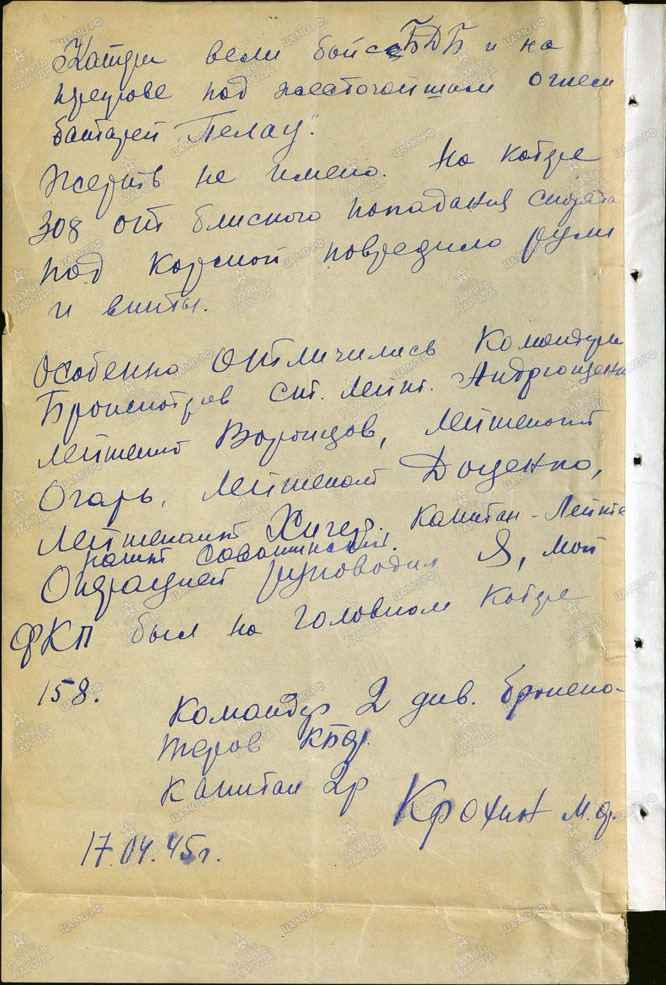 Катера вели бой с БДБ и на
переходе под жесточайшим огнем
батарей "Пелау".
Жертв не имею. На катере
308 от близкого попадания снаряда
под кормой повредило рули
и винты.
Особенно отличились Командиры
Бронекатеров Ст. Лейт. Андрющенко
лейтенант Воронцов, лейтенант
Огарь, лейтенант Доценко,
лейтенант Капитан-Лейте
нант Савашинский.
Операцией руководил Я, мой
ФКП был на головном катере
158.
Командир 2 див. бронека-
теров КБФ
Капитан 2р
Крохин М.Ф.
17.04.45г.